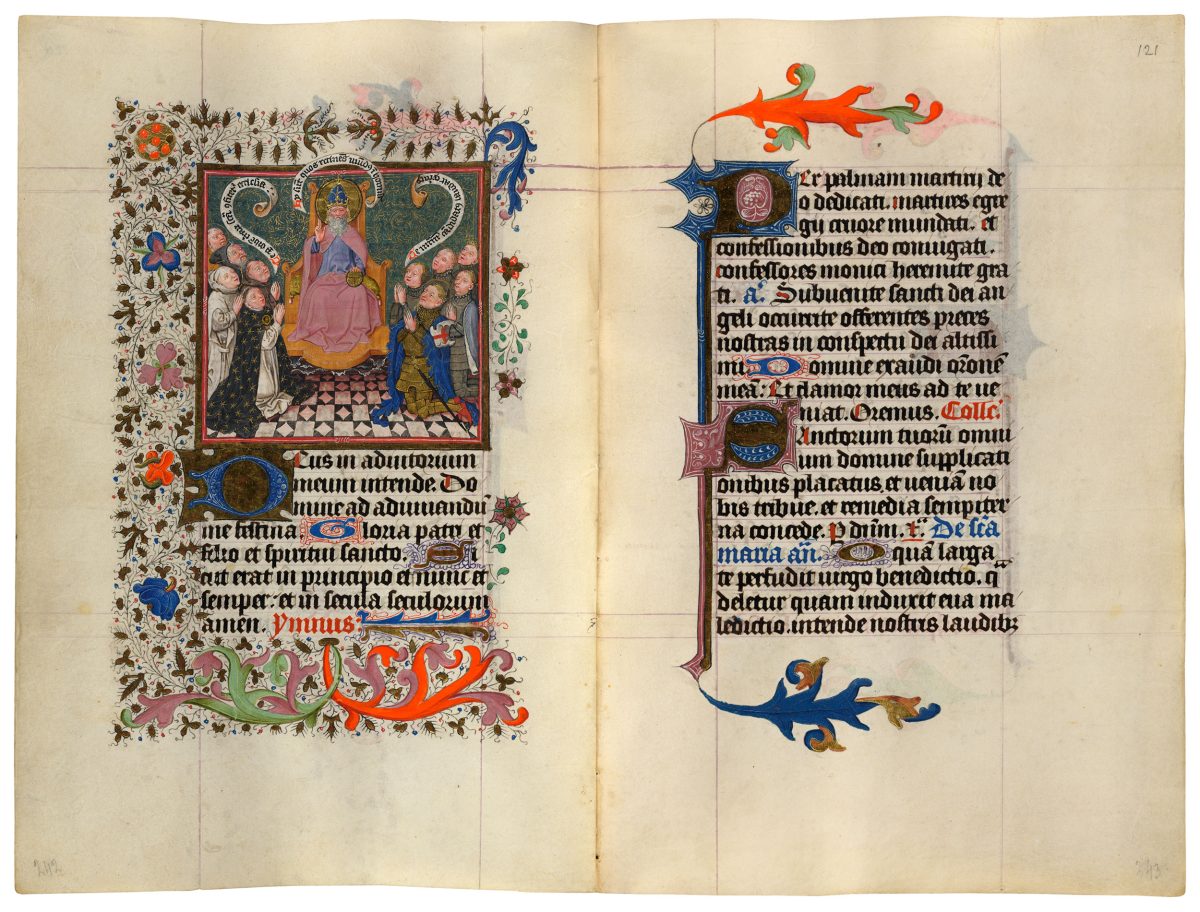 Deus in adiutorium
meum intende. Do
mine ad adiuuandū
me festina. Gloria patri et
filio et spiritui sancto. Si
cut erat in principio et nunc et
semper. et in secula seculorum
amen. Ymnus:
242
121
Per palmam martirij de
o dedicati. martires egre
gij cruore mundati. et
confessionibus deo coniugati.
confessores monici heremite gra
ti. a. Subuenite sancti dei an
geli occurrite offerentes preces
nostras in conspectu dei altissi
mi. Domine exaudi oronē
meā: Et clamor meus ad te ue
niat. Oremus. Collc̄
Sanctorum tuorū omni
um domine supplicati
onibus placatus et ueniā no
bis tribue. et remedia sempiter
na concede. P dnm̄. De sc̄a
maria an̄. O quā larga
te perfudit uirgo benedictio. q
deletur quam induxit eua ma
ledictio. intende nostris laudibꝫ
243